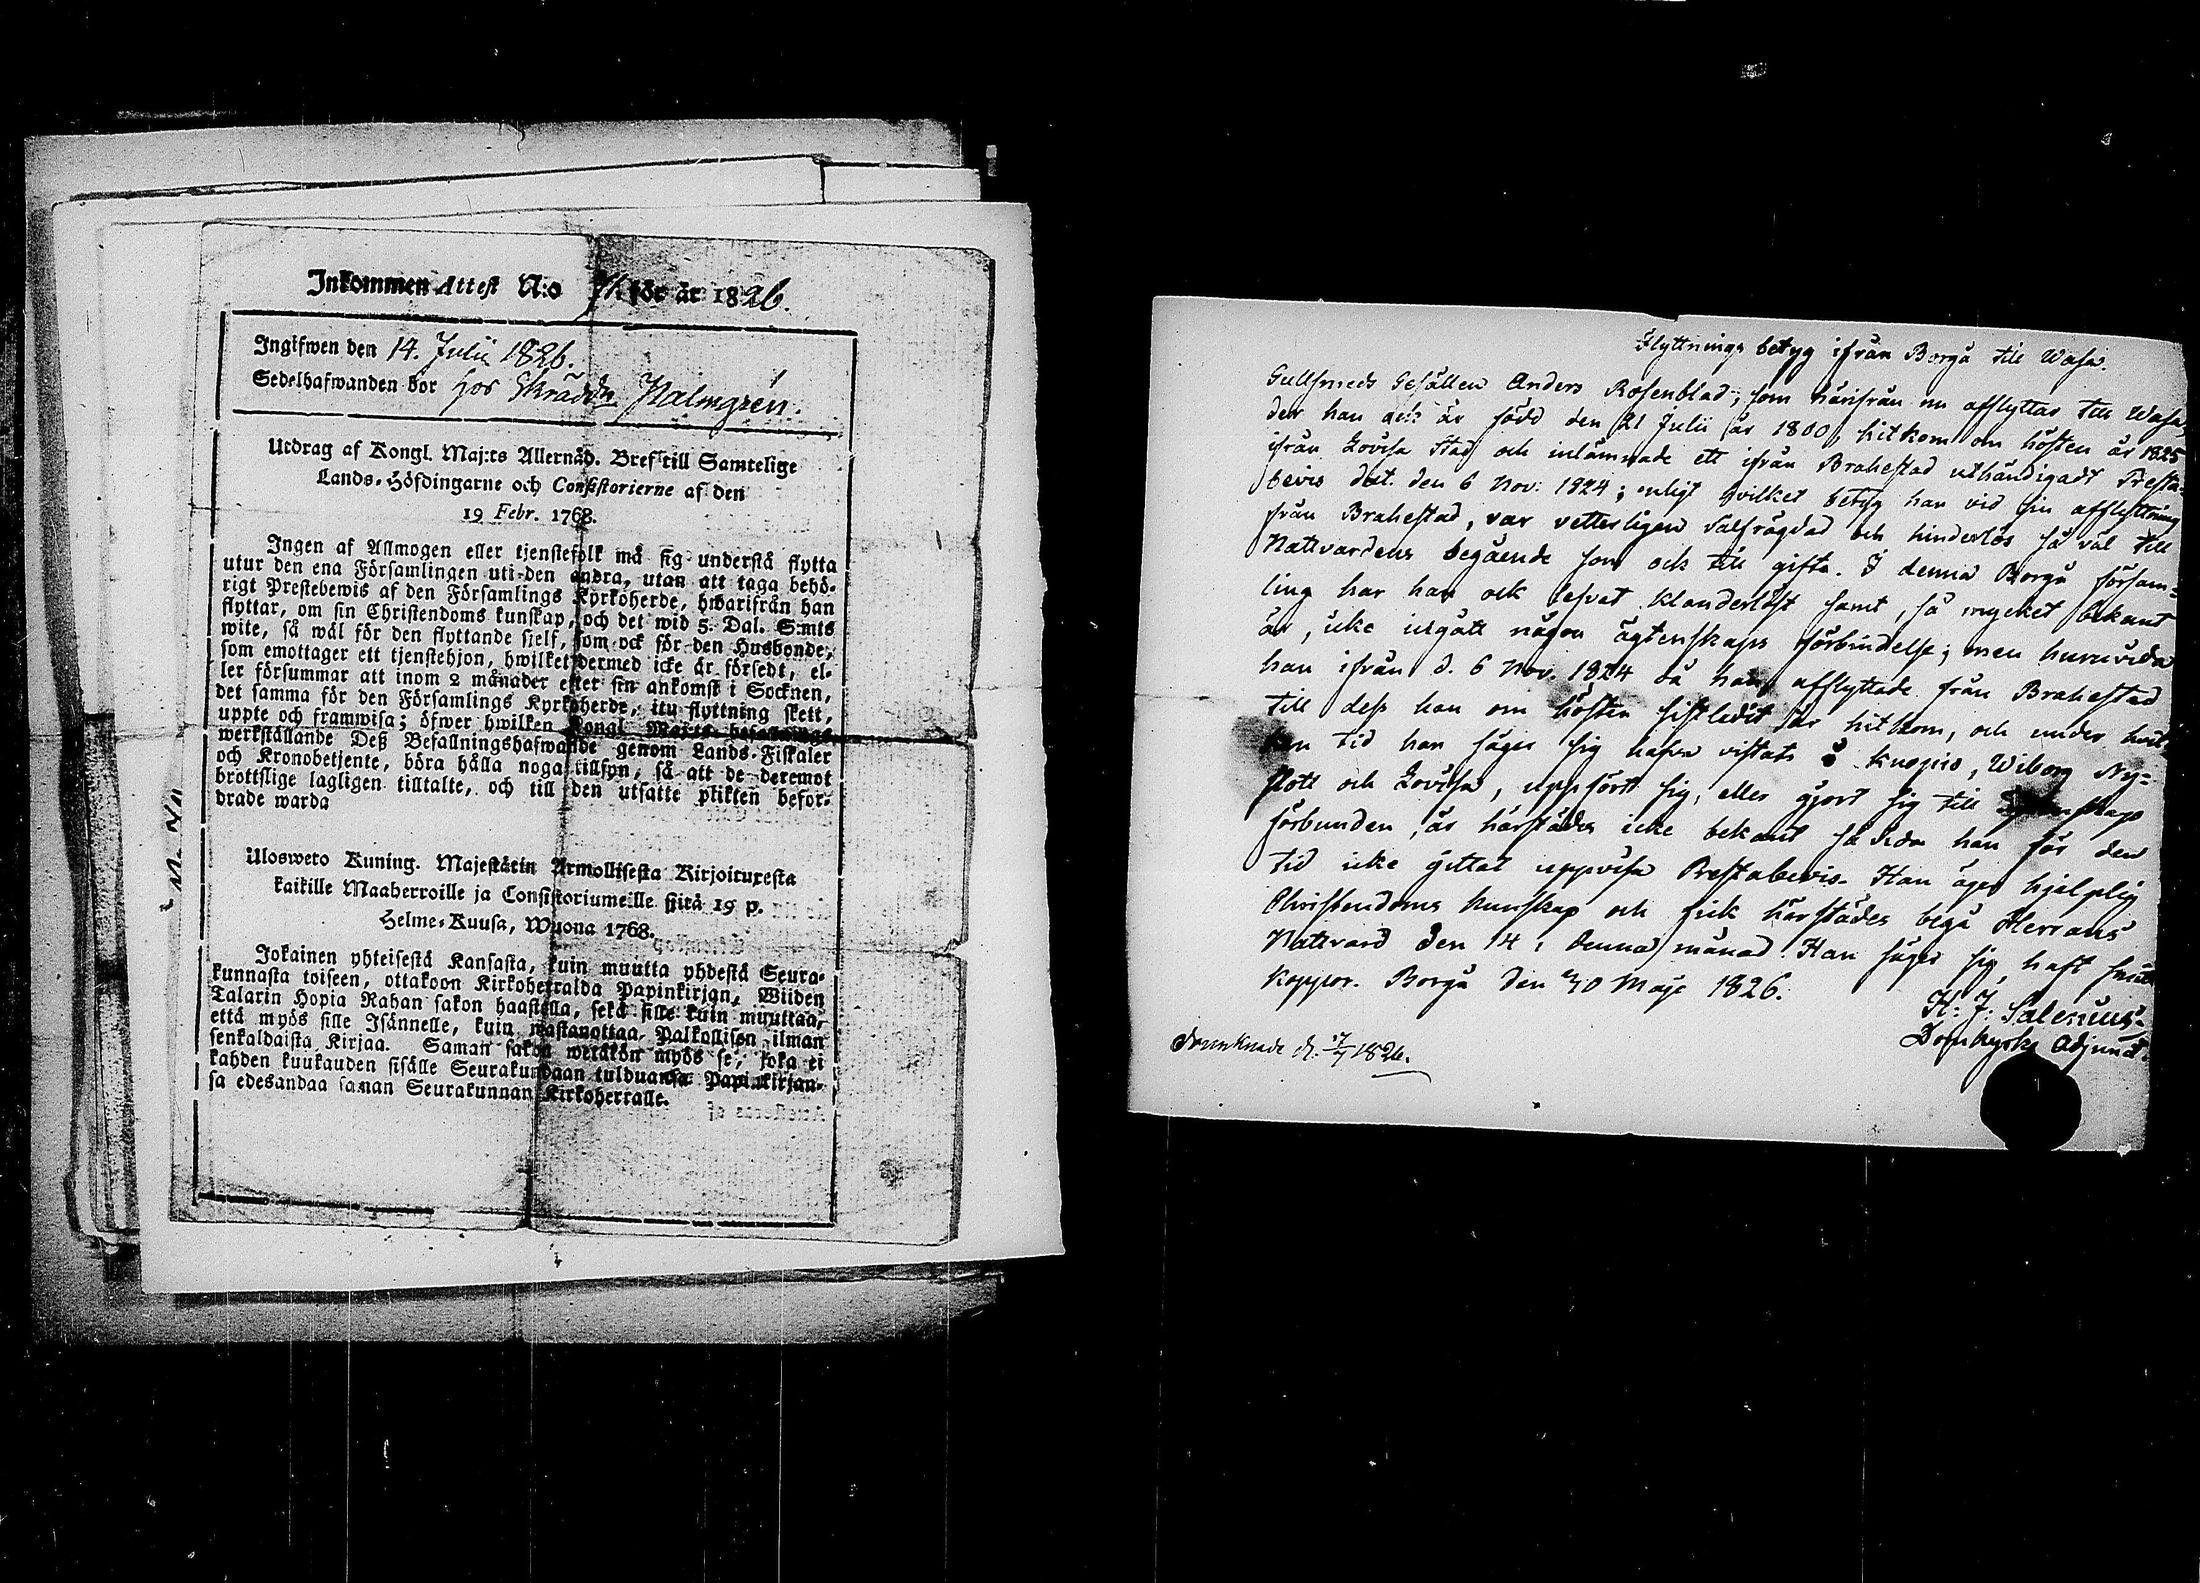 Inkommen Attest N:o 71. för år 1826.
Ingifwen den 14. Julii 1826.
Sedelhafwanden bor hos Skrädd: Palmgrén.
Utdrag af Kongl. Maj:ts Allernåd. Bref till Samtelige
Lands-Höfdingarne och Consistorierne af den
19 Febr. 1768.
Ingen af Allmogen eller tjenstefolk må sig understå flytta
utur den ena Församlingen uti den andra, utan att taga behö-
rigt Prestebewis af den Församlings Kyrkoherde, hwarifrån han
flyttar, om sin Christendoms kunskap, och det wid 5 Dal. S:mts
wite, så wäl för den flyttande sielf, som ock för den Husbonde,
som emottager ett tjenstehjon, hwilket dermed icke är försedt, el-
ler försummar att inom 2 månader efter sin ankomst i Socknen,
det samma för den Församlings Kyrkoherde, itu flyttning skett,
uppte och framwisa; öfwer hwilken Kongl. Maj:ts befallnings
werkställande Deß Befallningshafwande genom Lands-Fiskaler
och Kronobetjente, böra hålla noga tillsyn, så att de deremot
brottslige lagligen tilltalte, och till den utsatte plikten befor-
drade warda
Ulosweto Kuning. Majestätin Armollisesta Kirjoituxesta
kaikille Maaherroille ja Consistoriumeille siitä 19 p.
Helme-Kuusa, Wuona 1768.
Jokainen yhteisestä Kansasta, kuin muutta yhdestä Seura-
kunnasta toiseen, ottakoon Kirkoherralda Papinkirjan, Wiiden
Talarin Hopia Rahan sakon haastella, sekä sille kuin muuttaa,
että myös sille Isännelle, kuin wastanottaa Palkollisen ilman
senkaldaista Kirjaa. Saman sakon wetäkön myös se, joka ei
kahden kuukauden sisälle Seurakundaan tulduansa Papinkirjan-
sa edesandaa saman Seurakunnan Kirkoherralle.
Flyttnings betyg ifrån Borgå till Wasa.
Gullsmeds Gesällen Anders Rosenblad, som härifrån nu afflyttar till Wasa,
der han ock är född den 21 Julii år 1800, hitkom om hösten år 1825
ifrån Lovisa Stad och inlämnade ett ifrån Brahestad uthändigadt Presta-
bevis dat. den 6 Nov: 1824; enligt hvilket betyg han vid sin afflyttning
från Brahestad, var vetterligen välfrägdad och hinderlös så väl till
Nattvardens begående som ock till gifte. I denna Borgå försam-
ling har han ock lefvat klanderlöst samt, så mycket bekant
är, icke ingått någon ägtenskaps förbindelse; men huruvida
han ifrån d. 6 Nov. 1824 då han afflyttade från Brahestad
till dess han om hösten sistledit år hitkom, och under hvil-
ken tid han säger sig hafva vistats i Kuopio, Wiborg Ny-
slott och Lovisa, uppfört sig, eller gjort sig till ägtenskaps
förbunden, är härstädes icke bekant så vida han för den
tid icke gittat uppvisa Prestabevis. Han äger hjelplig
Christendoms kunskap och fick härstädes begå Herrans
Nattvard den 14 i denna månad. Han säger sig haft
koppor. Borgå den 30 Maji 1826.
H: J: Salenius
Domkyrko Adjunct.